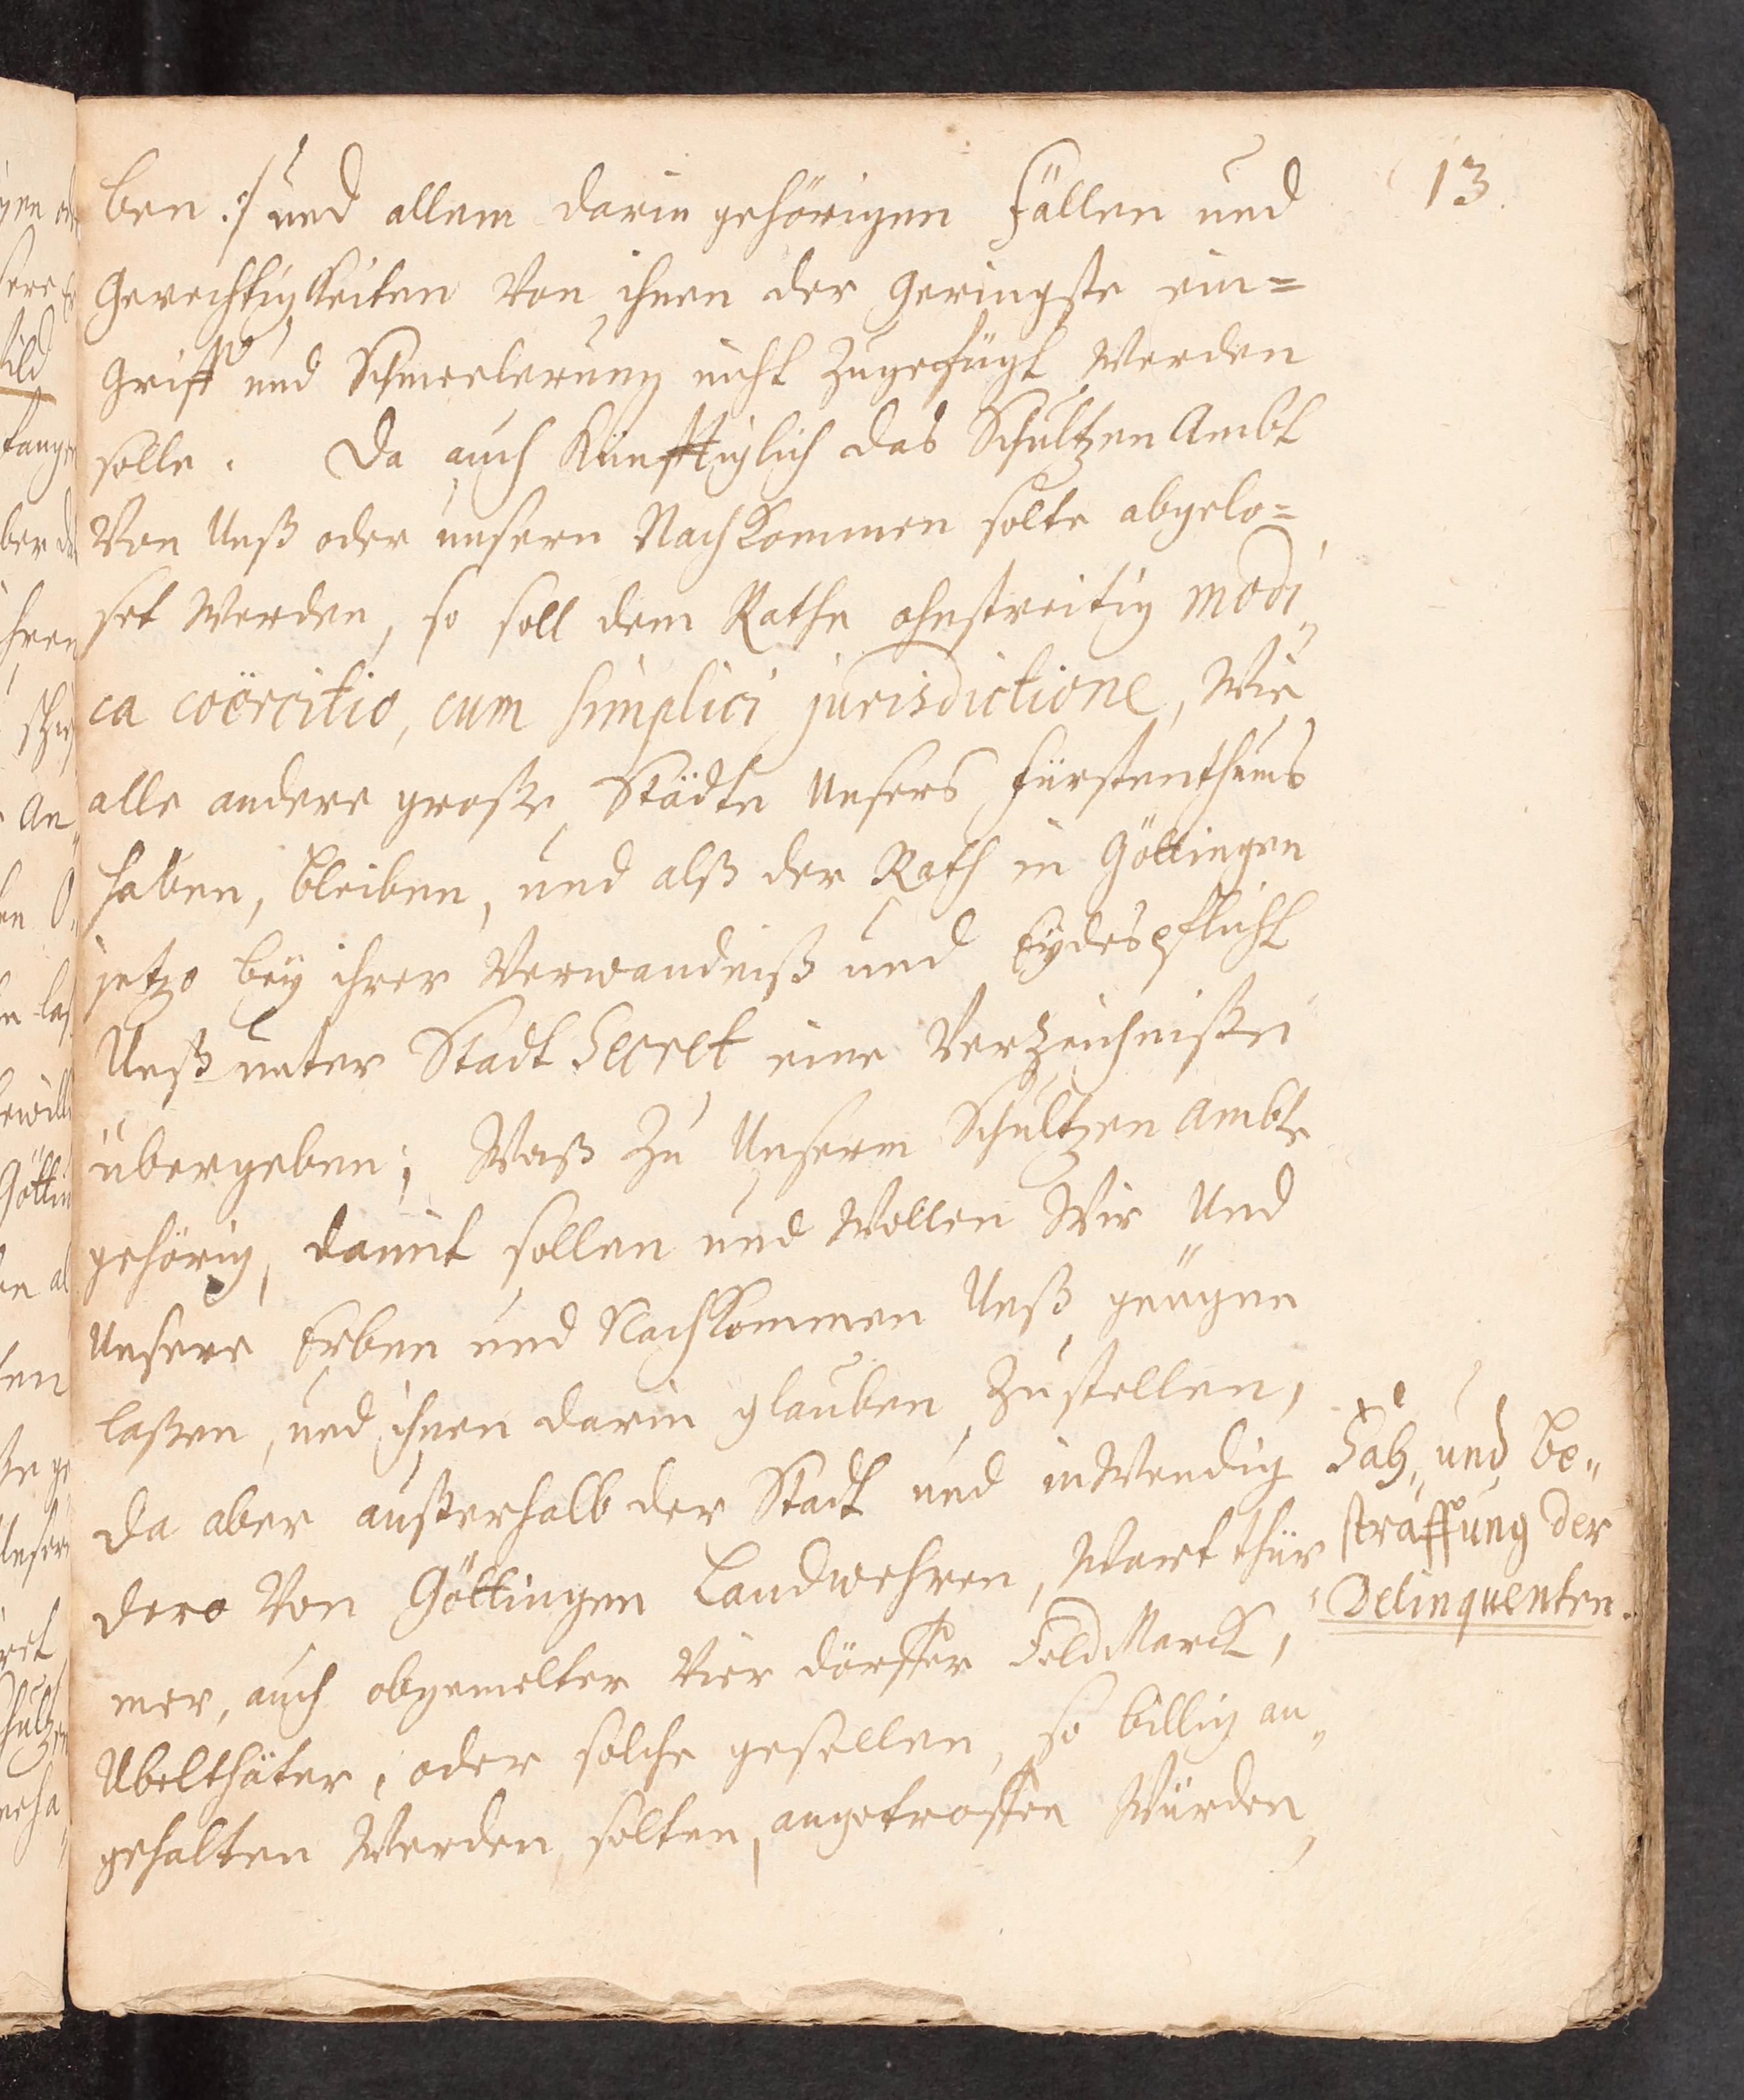 13.
ben :/ und allem darin gehörigen Fällen und
Gerechtigkeiten Von ihnen der Geringste ein=
Griff und Schmeelerung nicht Zugefügt Werden
solle. Da auch Künfftiglich das Schultzen Ambt
Von Unß oder unsern NachKommen solte abgelo=
set Werden, so soll dem Rathe ohnstreitig modi„
ca coërcitio, cum simplici jurisdictione, Wie
alle andere große Städte Unsers Fürstenthums
haben, bleiben, und alß der Rath in Göttingen
jetzo bey ihrer Verwandniß und Eydespflicht
Unß unter Stadt Secret eine Verzeichnißen
übergeben; Waß Zu Unserm Schultzen Ambte
gehörig, damit sollen und Wollen Wir Und
Unsere Erben und NachKommen Unß genügen
laßen, und ihnen darin glauben Zustellen,
da aber außerhalb der Stadt und inWendig
dero Von Göttingen Landwehren, Wart thür
mer, auch obgemelter Vier dörffer FeldMarck,
Ubelthäter, oder solche gesellen, so billig an„
gehalten Werden solten, angetroffen Würden,
Fah„ und be„
straffung der
Delinquenten.